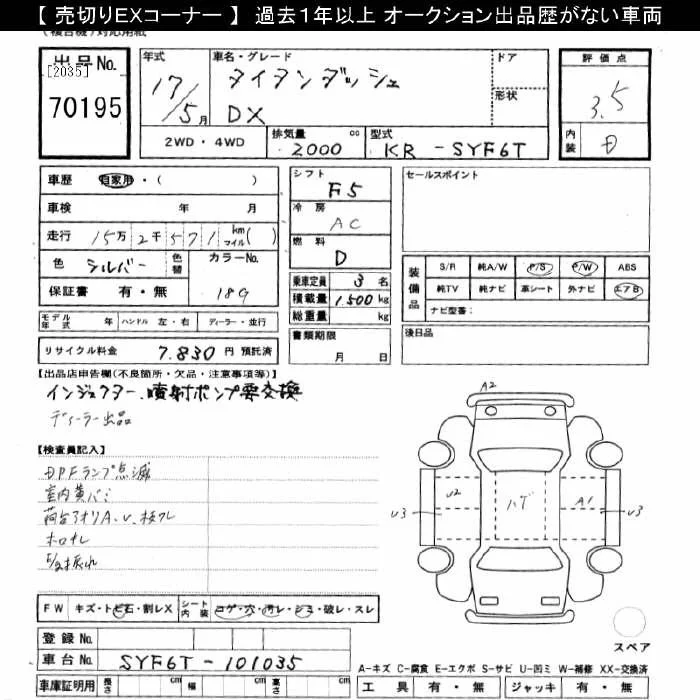 【 売切りEXコーナー 】 過去１年以上 オークション出品歴がない車両
出品No.
[2035]
70195
年式
17/5月
車名・グレード
タイタンダッシュ
DX
ドア
形状
2WD・4WD
排気量 2000 cc
型式 KR-SYF6T
評価点
3.5
内装 D
車歴 自家用・( )
車検 年 月
走行 15万2千571 km マイル( )
色 シルバー 色替 カラーNo.
18G
保証書 有・無
シフト
F5
冷房
AC
燃料
D
乗車定員 3名
積載量 1,500kg
総重量 kg
セールスポイント
装備品
S/R 純A/W P/S P/W ABS
純TV 純ナビ 革シート 外ナビ エアB
ナビ型番:
モデル年式 年 ハンドル 左・右 ディーラー・並行
書類期限
月 日
後日品
リサイクル料金 7,830円 預託済
【出品店申告欄(不良箇所・欠品・注意事項等)】
インジェクター、噴射ポンプ要交換
ディーラー出品
【検査員記入】
DPFランプ点滅
室内黄バミ
荷台アオリA、U、
A2
U2
U3
ハゲ
A1
U3
スペア
FW キズ・トビ石・割レX
シート内装 コゲ・穴・汚レ・シミ・破レ・スレ
登録No.
車台No. SYF6T-101035
A-キズ C-腐食 E-エクボ S-サビ U-凹ミ W-補修 XX-交換済
車庫証明用 長さ cm 幅 cm 高さ cm
工具 有・無 ジャッキ 有・無